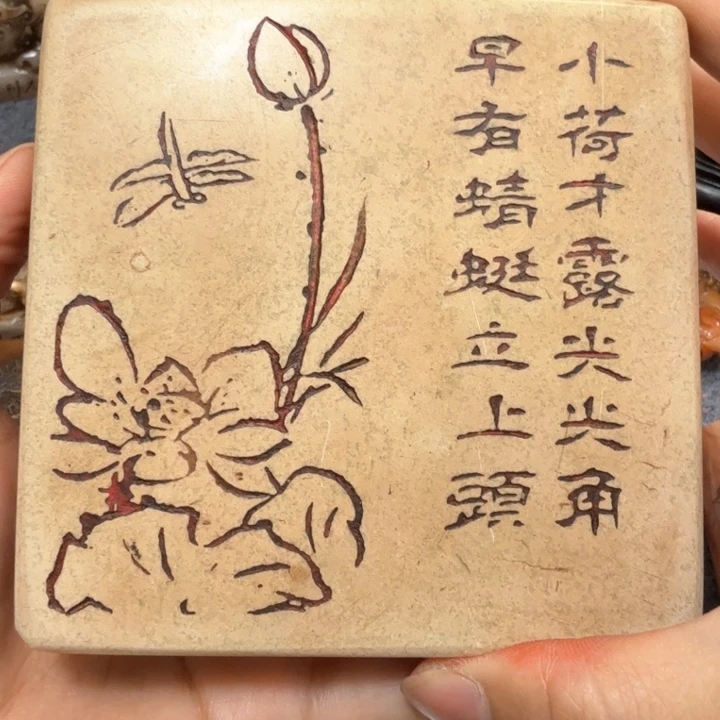 小荷才露尖尖角
早有蜻蜓立上頭